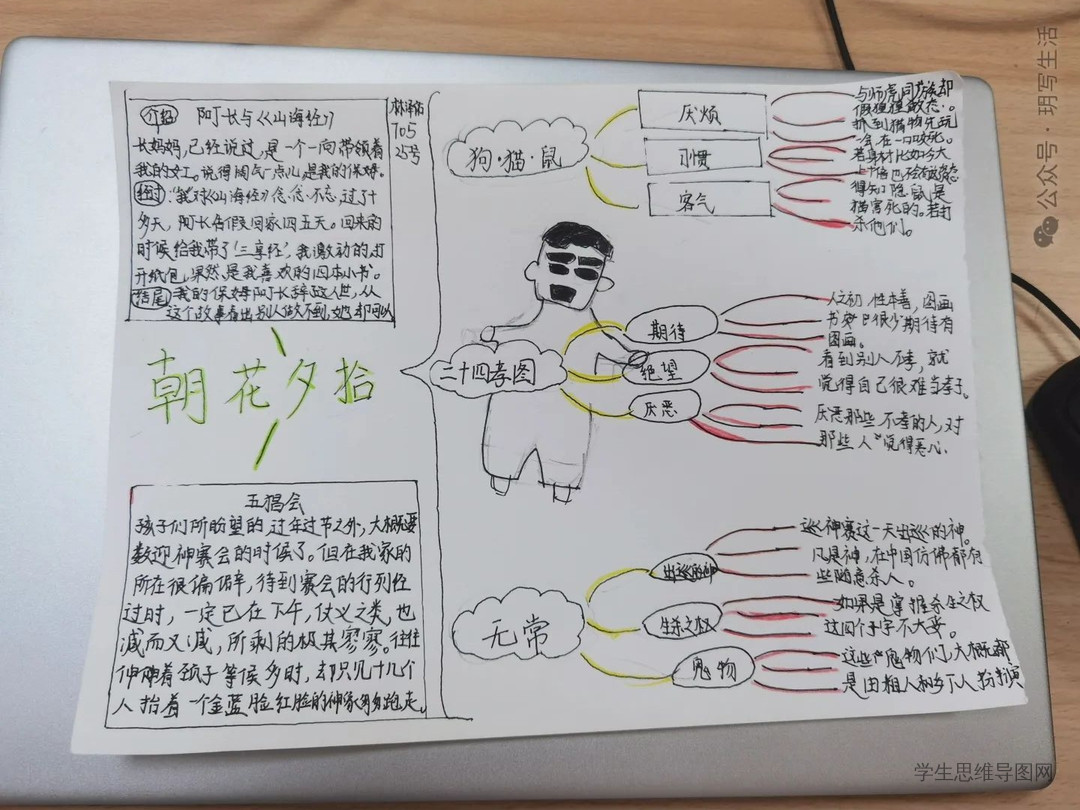 介绍 阿长与《山海经》
长妈妈,已经说过,是一个一向带领着
我的女工。说得阔气一点儿,是我的保姆。
经过:"我"对《山海经》念念不忘,过了十
多天,阿长告假回家四五天。回来的
时候给我带了「三享经」,我激动的打
开纸包,果然是我喜欢的四本小书。
结尾 我的保姆阿长辞这人世,从
这个故事看出别人做不到,她却可以
705
25号
朝花夕拾
五猖会
孩子们所盼望的,过年过节之外,大概要
数迎神赛会的时候了。但在我家的
所在很偏僻,待到赛会的行列经
过时,一定已在下午,仪仗之类,也
减而又减,所剩的极其寥寥。往往
伸着颈子等候多时,却只见十几个
人抬着一个金蓝脸红脸的神像匆匆跑走。
狗·猫·鼠
厌烦
与狮虎同族却
假惺惺媚态。
抓到猎物先玩
一会在一口咬死。
习惯
若身材比如今大
十倍也
客气
得知隐鼠是
猫害死的。若打
杀他们。
二十四孝图
期待
人之初 性本善,图画
书 很少期待有
图画。
绝望
看到别人不孝,就
觉得自己很难当孝子。
厌恶
厌恶那些不孝的人,对
那些人 觉得恶心.
无常
出巡的神
巡神赛这一天出巡的神。
凡是神,在中国仿佛都有
些随意杀人。
生杀之权
如果是掌握杀生之权
这四个字不大妥。
鬼物
这些"鬼物们,大概都
是由粗人和乡下人扮演
公众号·玥写生活
学生思维导图网